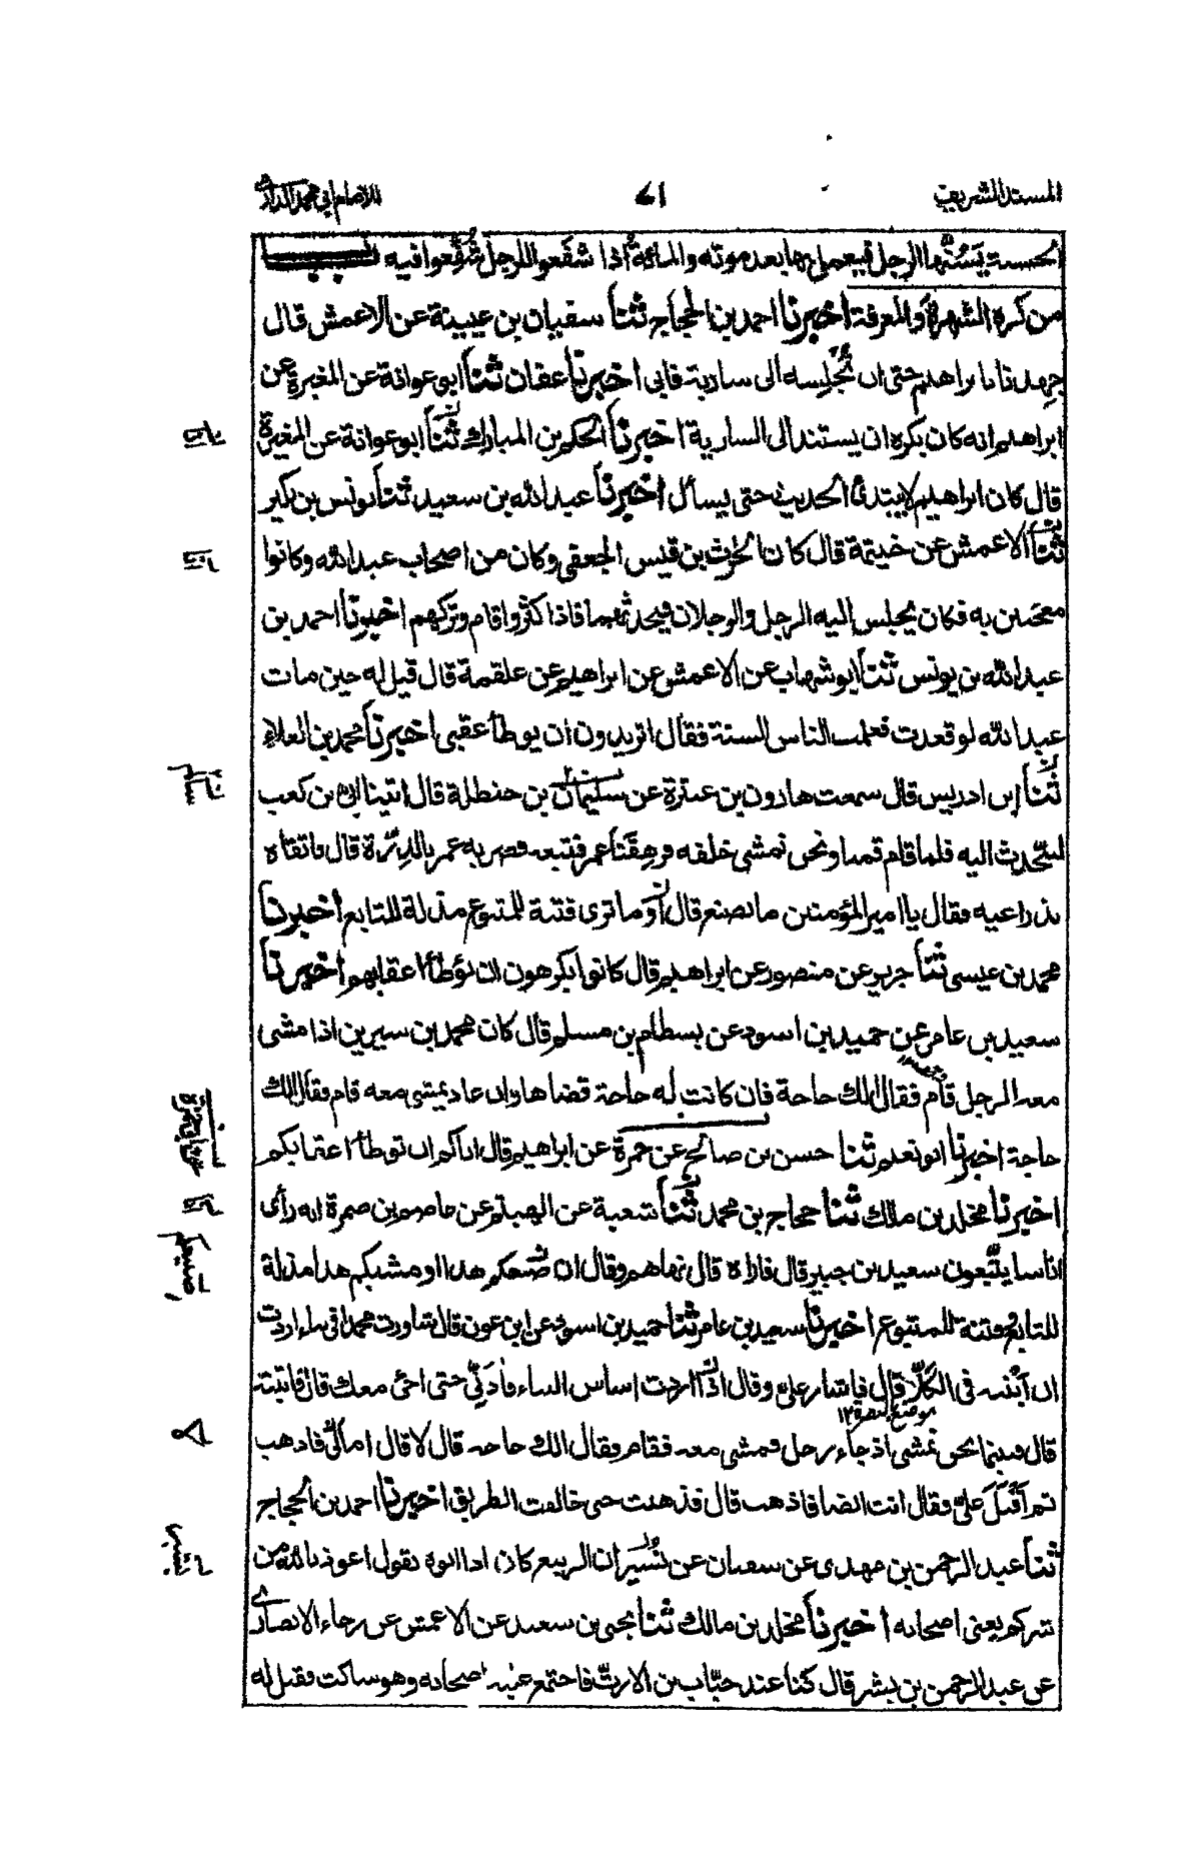 المسند الشريف ٧١ للامام ابى محمد الدارمى
الحسنة يَسُنُّها الرجل فيعمل بها بعد موته والمائة اذا شفعوا للرجل شُفِّعوا فيه باب
من كره الشهرة والمعرفة اخبرنا احمد بن الحجاج ثنا سفيان بن عيينة عن الاعمش قال
جهدنا بابراهيم حتى ان نُجلِسه الى سارية فابى اخبرنا عفان ثنا ابو عوانة عن المغيرة عن
ابراهيم انه كان يكره ان يستند الى السارية اخبرنا الحكم بن المبارك ثنا ابو عوانة عن المغيرة
قال كان ابراهيم لا يبتدئ الحديث حتى يسأل اخبرنا عبد الله بن سعيد ثنا يونس بن بكير
ثنا الاعمش عن خيثمة قال كان الحرث بن قيس الجعفى وكان من اصحاب عبد الله وكانوا
معجبين به فكان يجلس اليه الرجل والرجلان فيحدثهما فاذا كثروا قام وتركهم اخبرنا احمد بن
عبد الله بن يونس ثنا ابو شهاب عن الاعمش عن ابراهيم عن علقمة قال قيل له حين مات
عبد الله لو قعدت فعلمت الناس السنة فقال اتريدون ان يوطأ عقبى اخبرنا محمد بن العلاء
ثنا ابن ادريس قال سمعت هارون بن عنترة عن سليمان بن حنظلة قال اتينا ابى بن كعب
لنتحدث اليه فلما قام قمنا ونحن نمشى خلفه فرهقنا عمر فتبعه فضربه عمر بالدِرّة قال فاتقاه
بذراعيه فقال يا امير المؤمنين ما تصنع قال أو ما ترى فتنة للمتبوع مذلة للتابع اخبرنا
محمد بن عيسى ثنا جرير عن منصور عن ابراهيم قال كانوا يكرهون ان تؤطأ اعقابهم اخبرنا
سعيد بن عامر عن حميد بن اسود عن بسطام بن مسلم قال كان محمد بن سيرين اذا مشى
معه الرجل قام فقال الك حاجة فان كانت له حاجة قضاها وان عاد يمشى معه قام فقال الك
حاجة اخبرنا ابو نعيم ثنا حسن بن صالح عن حمزة عن ابراهيم قال اياكم ان توطأ اعقابكم
اخبرنا مخلد بن ملك ثنا حجاج بن محمد ثنا شعبة عن الهيثم عن عاصم بن ضمرة انه رأى
اناسا يتّبعون سعيد بن جبير قال فاراه قال نهاهم وقال ان صنيعكم هذا او مشيكم هذا مذلة
للتابع وفتنة للمتبوع اخبرنا سعيد بن عامر ثنا حميد بن اسود عن ابن عون قال شاورت محمدا فى بناء اردت
ان ابنيه فى الكَلّا قال فاشار علىّ وقال اذا اردت اساس البناء فآذنّى حتى اجئ معك قال فاتيته
موضع بالبصرة ١٢
قال فبينما نحن نمشى اذ جاء رجل فمشى معه فقام فقال الك حاجة قال لا قال اما لا فاذهب
ثم اَقْبَلَ علىّ فقال انت ايضا فاذهب قال فذهبت حتى خالفت الطريق اخبرنا احمد بن الحجاج
ثنا عبد الرحمن بن مهدى عن سفيان عن نُسَير ان الربيع كان اذا اتوه يقول اعوذ بالله من
شركم يعنى اصحابه اخبرنا مخلد بن مالك ثنا يحيى بن سعيد عن الاعمش عن رجاء الانصارى
عن عبد الرحمن بن بشر قال كنا عند خبّاب بن الارتّ فاجتمع عليه اصحابه وهو ساكت فقيل له